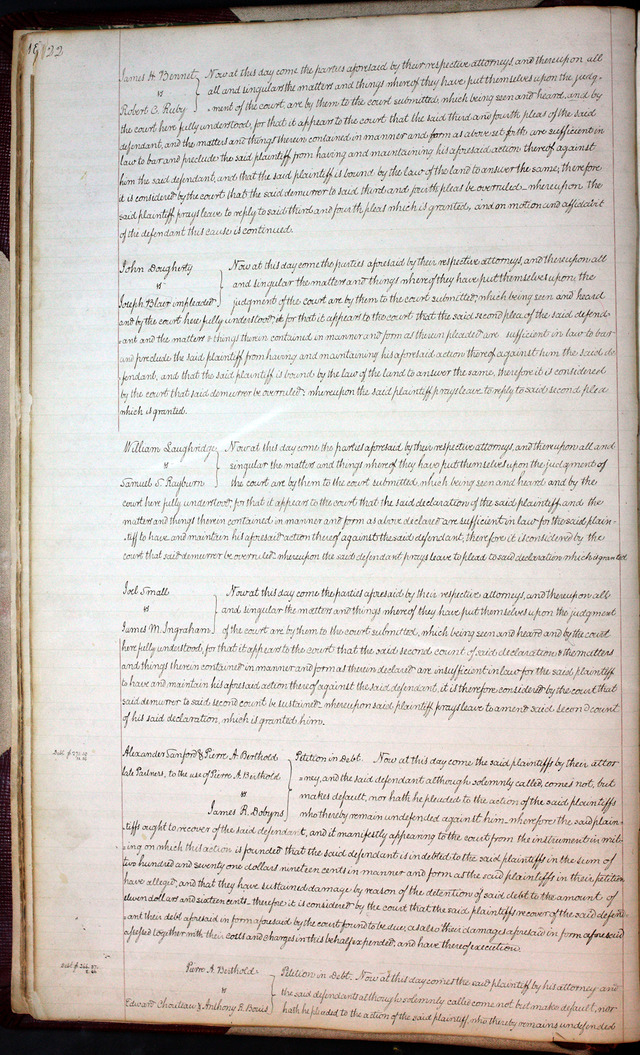 18
22
James H. Bennet Now at this day come the parties aforesaid by their respective attorneys, and thereupon all
vs all and singular the matters and things wherof they have put themselves upon the judg-
Robert C. Ruby ment of the court, are by them to the court submitted, which being seen and heard, and by
the court here fully understood, for that it appears to the court that the said third and fourth pleas of the said
defendant, and the matters and things therein contained in manner and form as above set forth are sufficient in
law to bar and preclude the said plaintiff from having and maintaining his aforesaid action thereof against
him the said defendant, and that the said plaintiff is bound by the law of the land to answer the same; therefore
it is considered by the court that the said demurrer to said third and fourth pleas be overruled. whereupon the
said plaintiff prays leave to reply to said third and fourth pleas which is granted, and on motion and affidavit
of the defendant this cause is continued.
John Dougherty Now at this day come the parties aforesaid by their respective attorneys, and thereupon all
vs and singular the matters and things wherof they have put themselves upon the
Joseph Blair impleaded judgment of the court are by them to the court submitted, which being seen and heard
and by the court here fully understood, for that it appears to the court that the said second plea of the said defend-
ant and the matters & things therein contained in manner and form as therein pleaded are sufficient in law to bar
and preclude the said plaintiff from having and maintaining his aforesaid action thereof against him the said de-
fendant, and that the said plaintiff is bound by the law of the land to answer the same, therefore it is considered
by the court that said demurrer be overruled: whereupon the said plaintiff prays leave to reply to said second plea
which is granted.
William Laughridge Now at this day come the parties aforesaid by their respective attorneys, and thereupon all and
vs singular the matter and things wherof they have put themselves upon the judgment of
Samuel T. Rayburn the court are by them to the court submitted which being seen and heard and by the
court here fully understood, for that it appears to the court that the said declaration of the said plaintiff and the
matters and things therein contained in manner and form as above declared are sufficient in law for the said plain-
tiff to have and maintain his aforesaid action thereof against the said defendant, therefore it is considered by the
court that said demurrer be overruled. whereupon the said defendant prays leave to plead to said declaration which is granted
Joel Small Now at this day come the parties aforesaid by their respective attorneys, and thereupon all
vs and singular the matters and things wherof they have put themselves upon the judgment
James M. Ingraham of the court are by them to the court submitted, which being seen and heard and by the court
here fully understood, for that it appears to the court that the said second count of said declaration & the matters
and things therein contained in manner and form as therein declared are insufficient in law for the said plaintiff
to have and maintain his aforesaid action thereof against the said defendant, it is therefore considered by the court that
said demurrer to said second count be sustained. whereupon said plaintiff prays leave to amend said second count
of his said declaration, which is granted him.
Alexander Sanford & Pierre A. Berthold Petition in Debt. Now at this day come the said plaintiffs by their attor
late Partners, to the use of Pierre A. Berthold ney, and the said defendant although solemnly called, comes not, but
vs makes default, nor hath he pleaded to the action of the said plaintiffs
James R. Dobyns who thereby remain undefended against him. wherefore the said plain-
tiffs ought to recover of the said defendant, and it manifestly appearing to the court from the instrument in writ-
ing on which this action is founded that the said defendant is indebted to the said plaintiffs in the sum of
two hundred and seventy one dollars nineteen cents in manner and form as the said plaintiffs in their petition
have alleged, and that they have sustained damage by reason of the detention of said debt to the amount of
eleven dollars and sixteen cents. therefore it is considered by the court that the said plaintiffs recover of the said defend-
ant their debt aforesaid in form aforesaid by the court found to be due, as also their damages aforesaid in form aforesaid
assessed together with their costs and charges in this behalf expended. and have thereof execution.
Pierre A. Berthold Petition in Debt. Now at this day comes the said plaintiff by his attorney and
vs the said defendant although solemnly called come not but makes default, nor
Edward Chouteau & Anthony R. Bouis hath he pleaded to the action of the said plaintiff, who thereby remains undefended